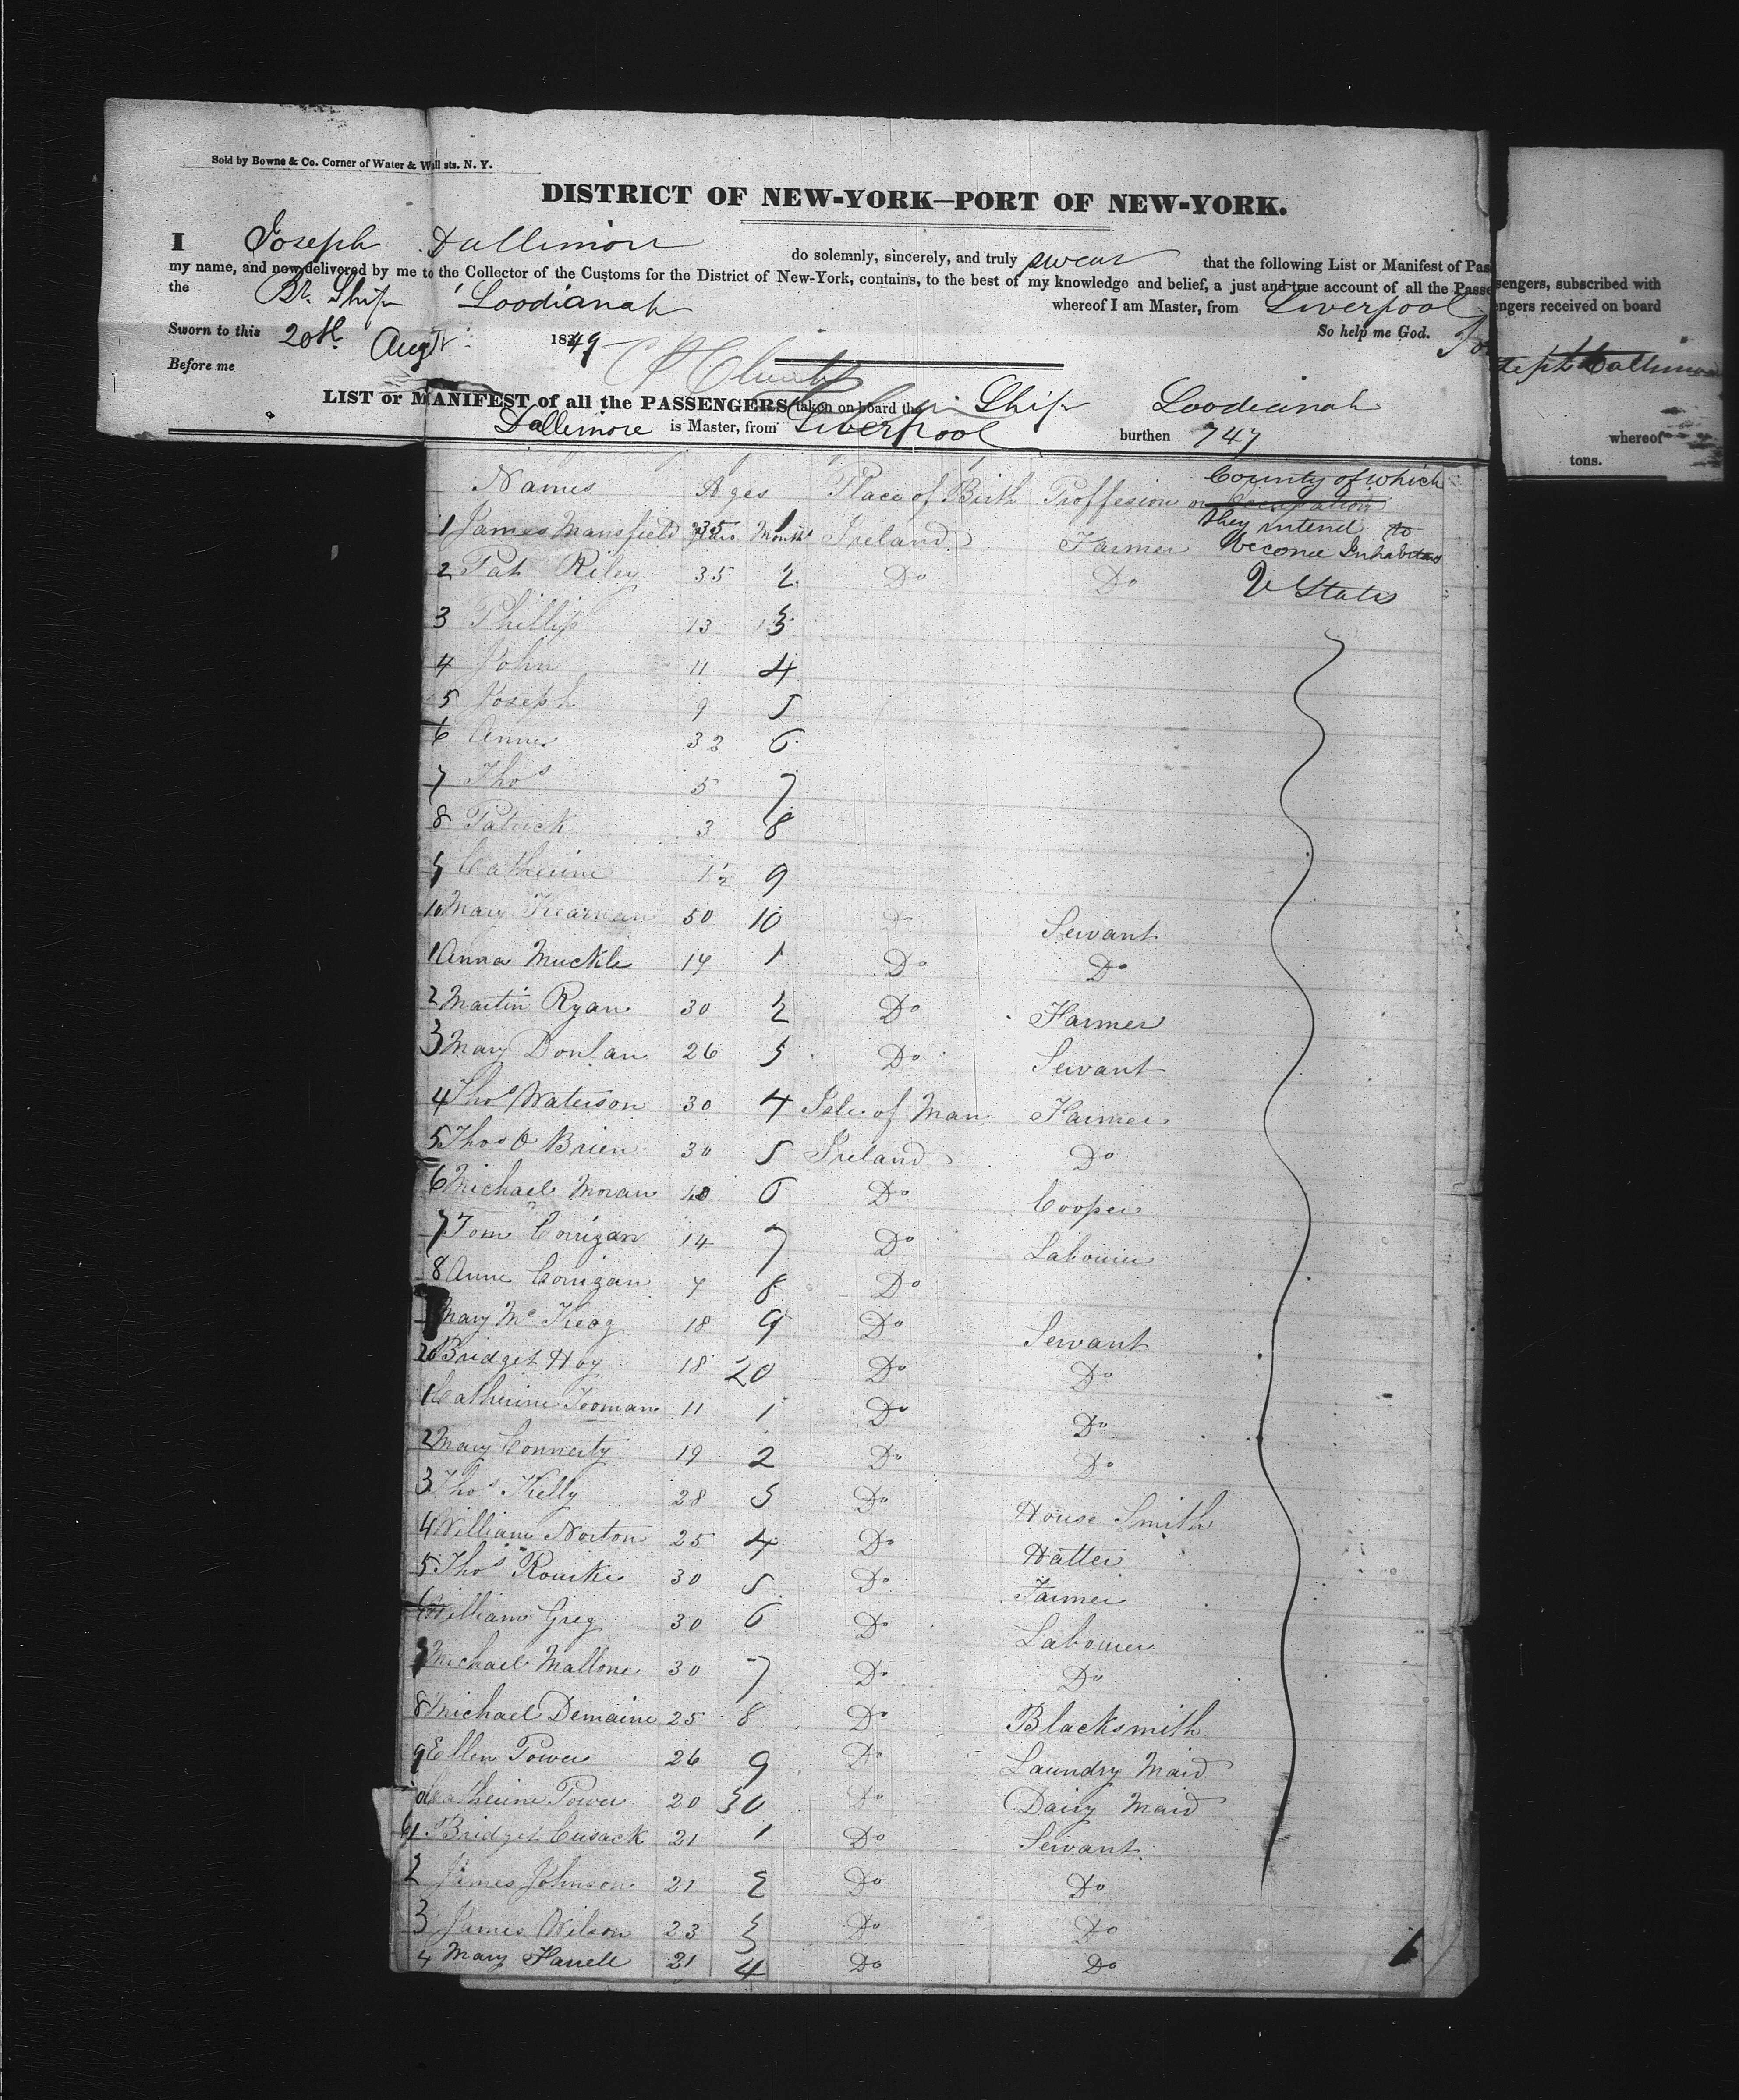 Sold by Bowne & Co. Corner of Water & Wall sts. N. Y.
DISTRICT OF NEW-YORK—PORT OF NEW-YORK.
I Joseph Dallimore do solemnly, sincerely, and truly swear that the following List or Manifest of Passengers, subscribed with
my name, and now delivered by me to the Collector of the Customs for the District of New-York, contains, to the best of my knowledge and belief, a just and true account of all the Passengers received on board
the Br. Ship Loodianah whereof I am Master, from Liverpool
Sworn to this 20th Augt 1849 So help me God.
Before me Joseph Dallimore
LIST or MANIFEST of all the PASSENGERS taken on board the Ship Loodianah whereof
Dallimore is Master, from Liverpool burthen 747 tons.
Names Ages Place of Birth Proffesion or Occupation County of which they intend to become Inhabitans
1 James Mansfield 35 years 1 Months Ireland Farmer
2 Pat Riley 35 2 Do Do U States
3 Phillip 13 3
4 John 11 4
5 Joseph 9 5
6 Anne 32 6
7 Thos 5 7
8 Patrick 3 8
9 Catherine 1½ 9
10 Mary Kearnan 50 10 Do Servant
1 Anna Muckle 14 1 Do Do
2 Martin Ryan 30 2 Do Farmer
3 Mary Donlan 26 3 Do Servant
4 Thos Waterson 30 4 Isle of Man Farmer
5 Thos O Brien 30 5 Ireland Do
6 Michael Moran 40 6 Do Cooper
7 Tom Corrigan 14 7 Do Labourer
8 Anne Corrigan 7 8 Do
Mary Mc Keog 18 9 Do Servant
20 Bridget Hoy 18 20 Do Do
1 Catherine Tooman 11 1 Do Do
2 Mary Connerty 19 2 Do Do
3 Thos Kelly 28 3 Do House Smith
4 William Norton 25 4 Do Hatter
5 Thos Rourke 30 5 Do Farmer
6 William Greg 30 6 Do Labourer
7 Michael Mallone 30 7 Do Do
8 Michael Demaine 25 8 Do Blacksmith
9 Ellen Power 26 9 Do Laundry Maid
Catherine Power 20 30 Do Dairy Maid
1 Bridget Cusack 21 1 Do Servant
2 James Johnson 21 2 Do Do
3 James Wilson 23 3 Do Do
4 Mary Farrell 21 4 Do Do